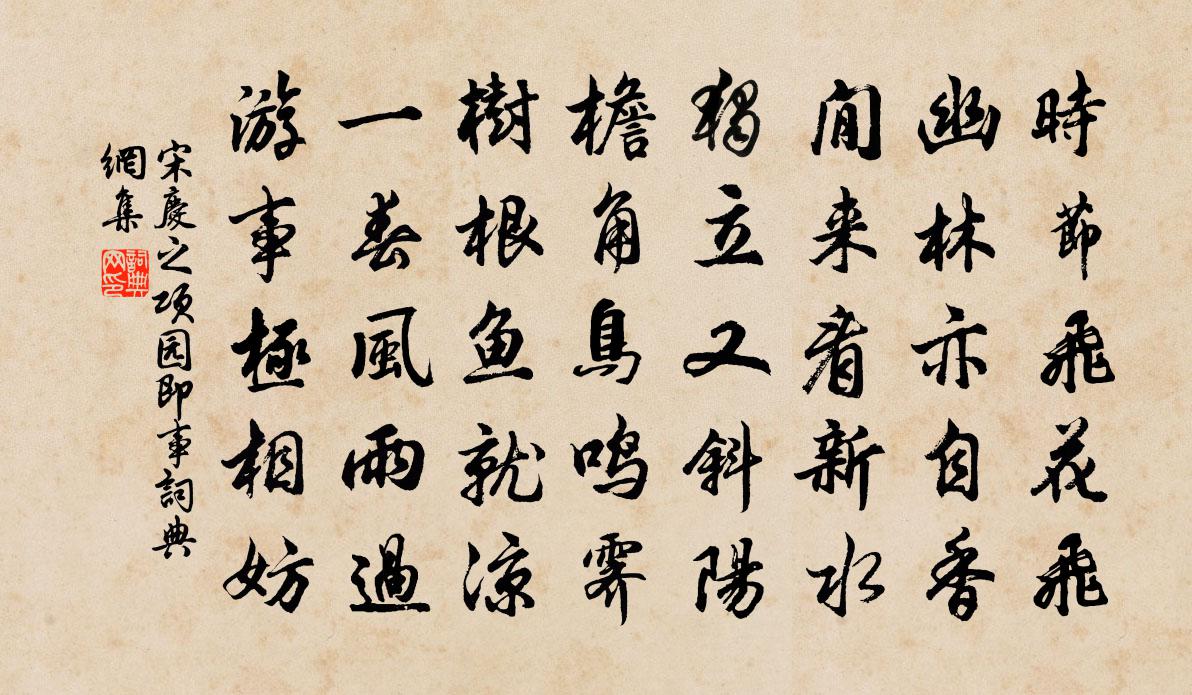 時節飛花飛
幽林亦自香
閒来看新水
獨立又斜陽
檐角鳥鳴霽
樹根魚就涼
一春風雨過
游事極相妨
宋慶之项园即事詞典
網集
詞典網印